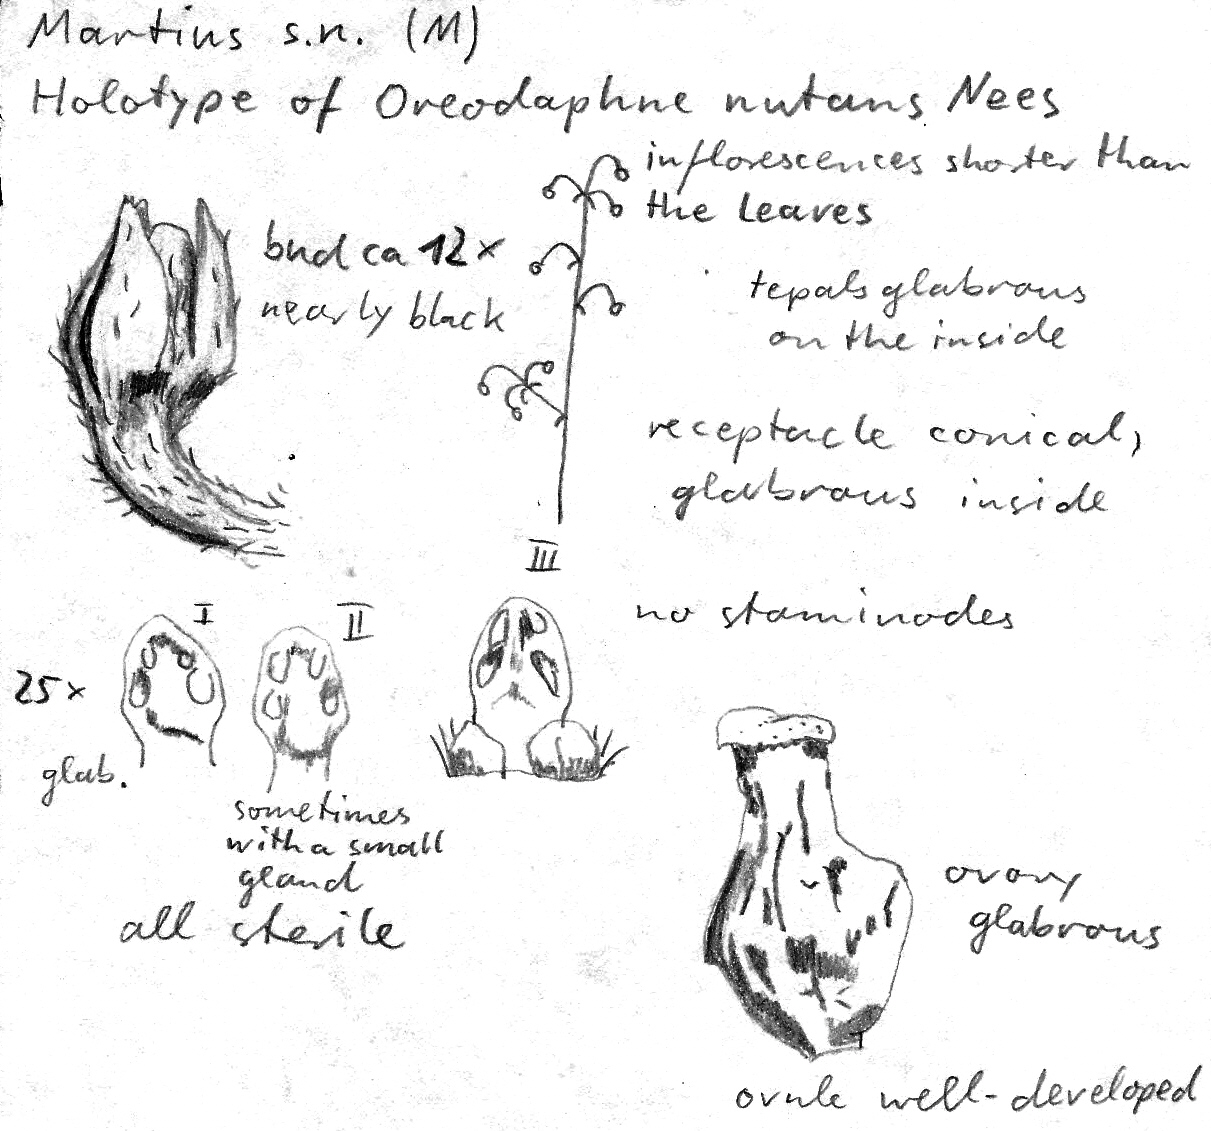 Martius s.n. (M)
Holotype of Oreodaphne nutans Nees
inflorescences shorter than
the leaves
bud ca 12 x
nearly black
tepals glabrous
on the inside
receptacle conical,
glabrous inside
III
no staminodes
I
II
25 x
glab.
sometimes
with a small
gland
all sterile
ovary
glabrous
ovule well-developed